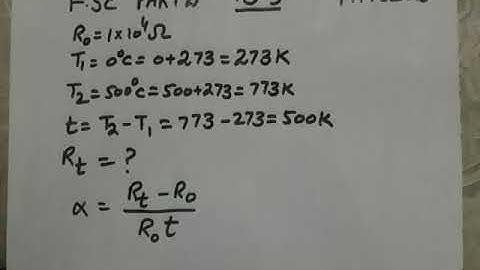 F.SC PART
R₀ = 1×10⁴Ω
T₁ = 0°C = 0+273 = 273K
T₂ = 500°C = 500+273 = 773K
t = T₂ - T₁ = 773 - 273 = 500K
Rt = ?
α = Rt - R₀
R₀ t